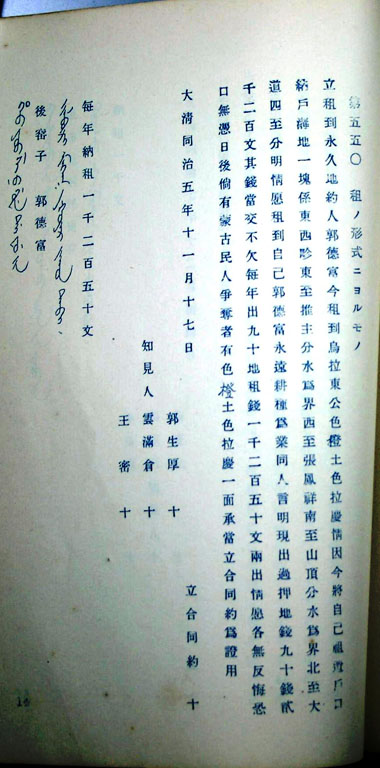 第五五〇　租ノ形式ニヨルモノ
立租到永久地約人郭德富今租到烏拉東公色橙土色拉慶情因今將自己祖遺戶口
納戶灘地一塊係東西畛東至推主分水爲界西至張鳳祥南至山頂分水爲界北至大
道四至分明情愿租到自己郭德富永遠耕種爲業同人言明現出過押地錢九十錢貳
千二百文其錢當交不欠每年出九十地租錢一千二百五十文兩出情愿各無反悔恐
口無憑日後倘有蒙古民人爭奪者有色橙土色拉慶一面承當立合同約爲證用
立合同約　十
大淸同治五年十一月十七日
郭生厚　十
知見人　雲滿倉　十
王密　十
每年納租一千二百五十文
後窰子　郭德富